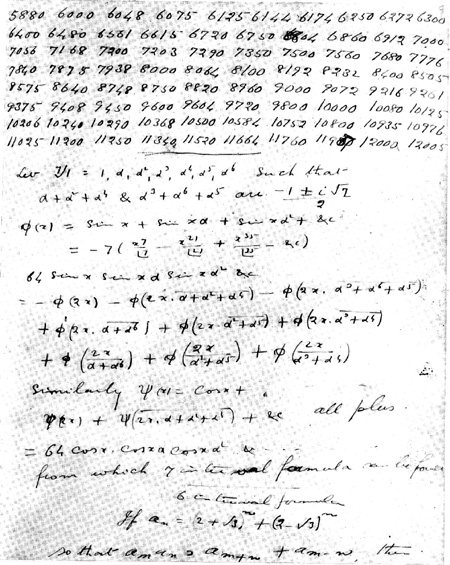 5880 6000 6048 6075 6125 6144 6174 6250 6272 6300
6400 6480 6561 6615 6720 6750 6804 6860 6912 7000
7056 7168 7200 7203 7290 7350 7500 7560 7680 7776
7840 7875 7938 8000 8064 8100 8192 8232 8400 8505
8575 8640 8748 8750 8820 8960 9000 9072 9216 9261
9375 9408 9450 9600 9604 9720 9800 10000 10080 10125
10206 10240 10290 10368 10500 10584 10752 10800 10935 10976
11025 11200 11250 11340 11520 11664 11760 12000 12005
Let ⁷√1 = 1, α, α², α³, α⁴, α⁵, α⁶ such that
α + α² + α⁴ & α³ + α⁶ + α⁵ are (-1 ± i√7)/2
φ(x) = sin x + sin xα + sin xα² + &c
= -7 ( x⁷/|7 - x²¹/|21 + x³⁵/|35 - &c )
64 sin x sin xα sin xα² &c
= -φ(2x) - φ(2x. α+α²+α⁴) - φ(2x. α³+α⁶+α⁵)
+ φ(2x. α+α⁶) + φ(2x α²+α⁵) + φ(2x. α³+α⁴)
+ φ(2x/(α+α⁶)) + φ(2x/(α²+α⁵)) + φ(2x/(α³+α⁴))
Similarly ψ(x) = cos x +
ψ(2x) + ψ(2x. α+α²+α⁴) + &c all plus.
= 64 cos x. cos xα cos xα² &
from which 7 interval formula can be found
6 interval formulae
If aₙ = (2+√3)ⁿ + (2-√3)ⁿ
so that aₘ aₙ = aₘ₊ₙ + aₘ₋ₙ, then